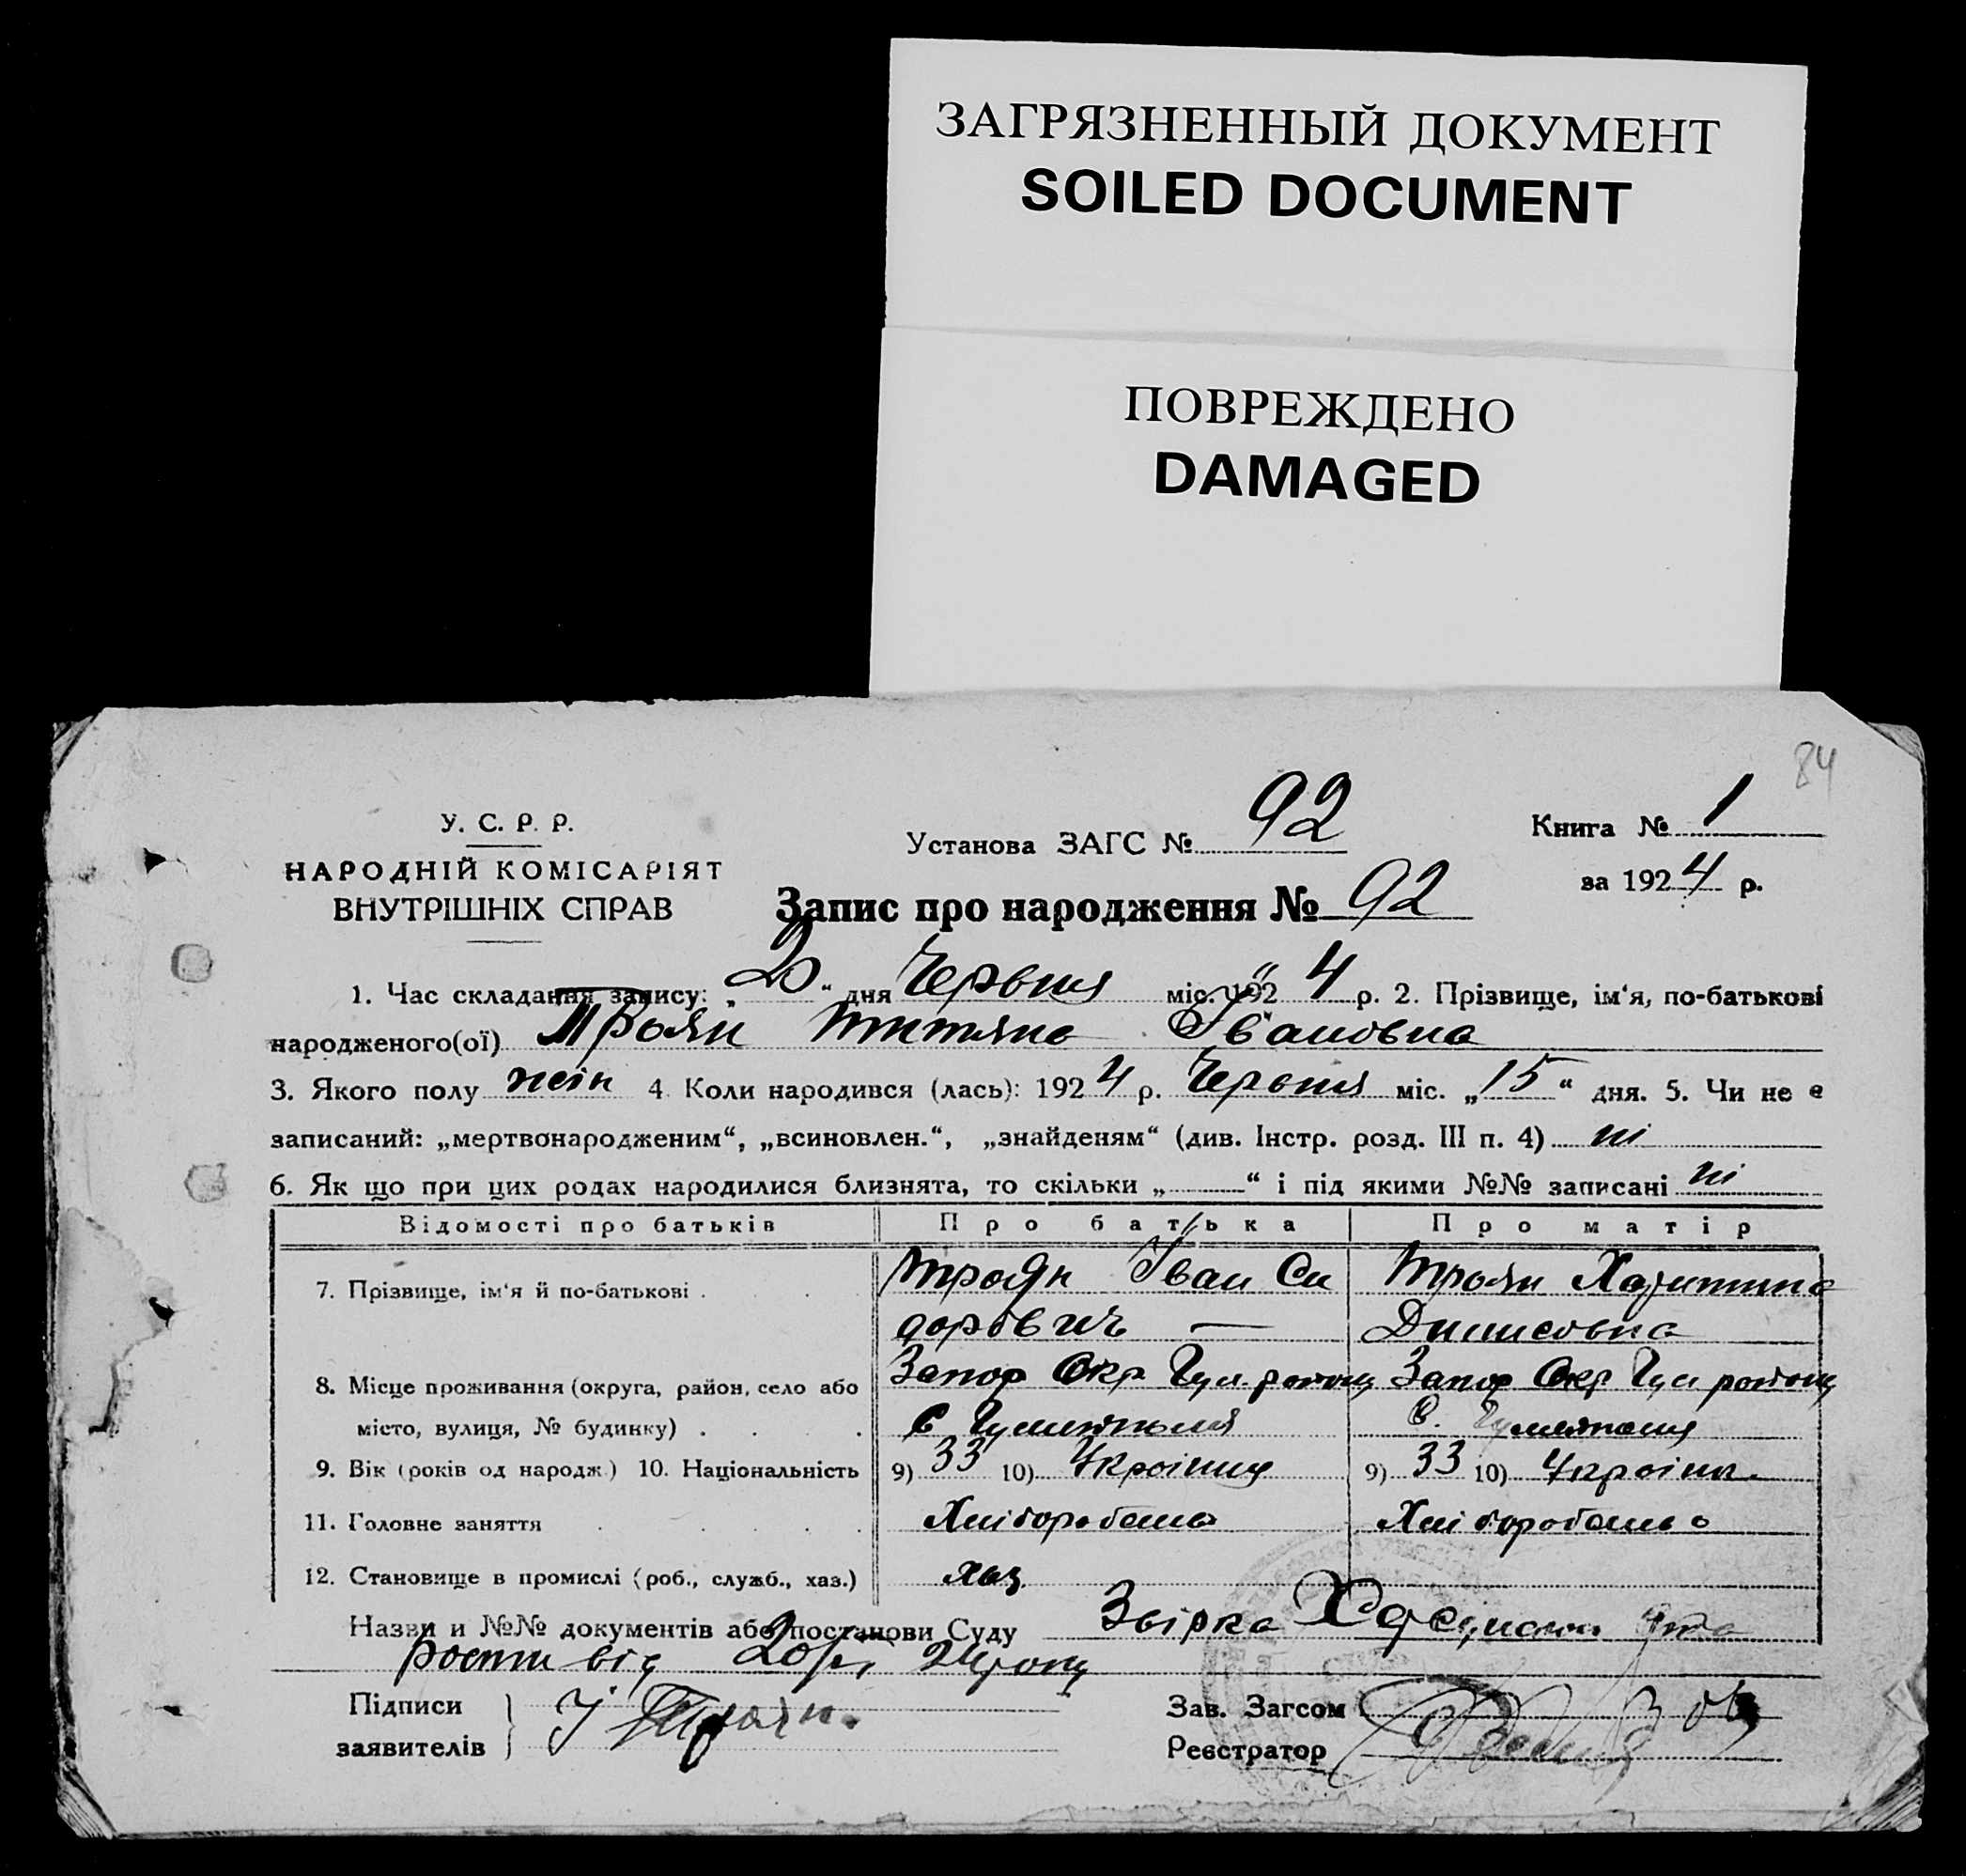 ЗАГРЯЗНЕННЫЙ ДОКУМЕНТ
SOILED DOCUMENT
ПОВРЕЖДЕНО
DAMAGED
84
У. С. Р. Р.
НАРОДНІЙ КОМІСАРІЯТ
ВНУТРІШНІХ СПРАВ
Установа ЗАГС № 92
Книга № 1
за 1924 р.
Запис про народження № 92
1. Час складання запису: „ “ дня Червня міс. 1924 р. 2. Прізвище, ім‘я, по-батькові
народженого(ої) Троян Титяна Івановна
3. Якого полу жін 4. Коли народився (лась): 1924 р. Червня міс. „15“ дня. 5. Чи не є
записаний: „мертвонародженим“, „всиновлен.“, „знайденям“ (див. Інстр. розд. III п. 4) ні
6. Як що при цих родах народилися близнята, то скільки „ “ і під якими №№ записані ні
Відомості про батьків Про батька Про матір
7. Прізвище, ім‘я й по-батькові . Троян Іван Си Троян Харитина
доровичъ — Денисовна
8. Місце проживання (округа, район, село або Запор Окр Гул. району Запор Окр Гул району
місто, вулиця, № будинку) . с Гуляйполя с. Гуляйполя
9. Вік (років од народж.) 10. Національність 9) 33 10) Україниц 9) 33 10) Україн.
11. Головне заняття Хліборобство Хліборобство
12. Становище в промислі (роб., служб., хаз.) хаз.
Назви и №№ документів або постанови Суду Звірка
від 20/ 24 року
Підписи
заявителів І Троян.
Зав. Загсом
Реєстратор